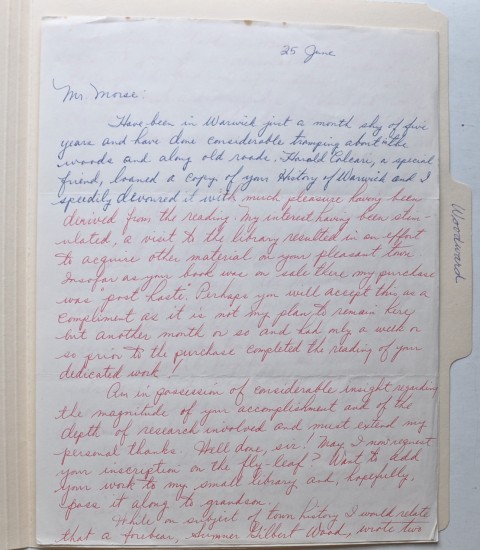 25 June
Mr. Morse:
Have been in Warwick just a month shy of five
years and have done considerable tramping about the
woods and along old roads. Harold Colcari, a special
friend, loaned a copy of your History of Warwick and I
speedily devoured it with much pleasure having been
derived from the reading. My interest having been stim-
ulated, a visit to the library resulted in an effort
to acquire other material on your pleasant town.
Insofar as your book was on sale there my purchase
was "post haste". Perhaps you will accept this as a
compliment as it is not my plan to remain here
but another month or so and had only a week or
so prior to the purchase completed the reading of your
dedicated work!
Am in possession of considerable insight regarding
the magnitude of your accomplishment and of the
depth of research involved and must extend my
personal thanks. Well done, sir! May I now request
your inscription on the fly-leaf? Want to add
your work to my small library and, hopefully,
pass it along to grandson.
While on subject of town history I would relate
that a forebear, Sumner Gilbert Wood, wrote two
Woodward